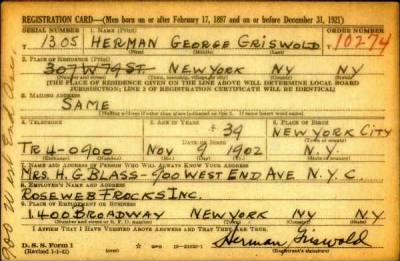 REGISTRATION CARD—(Men born on or after February 17, 1897 and on or before December 31, 1921)
SERIAL NUMBER 1. NAME (Print) ORDER NUMBER
T 1305 HERMAN GEORGE GRISWOLD 10274
(First) (Middle) (Last)
2. PLACE OF RESIDENCE (Print)
307 W 79 ST NEW YORK NY NY
(Number and street) (Town, township, village, or city) (County) (State)
[THE PLACE OF RESIDENCE GIVEN ON THE LINE ABOVE WILL DETERMINE LOCAL BOARD
JURISDICTION; LINE 2 OF REGISTRATION CERTIFICATE WILL BE IDENTICAL]
3. MAILING ADDRESS
SAME
[Mailing address if other than place indicated on line 2. If same insert word same]
4. TELEPHONE 5. AGE IN YEARS 6. PLACE OF BIRTH
39 NEW YORK CITY
DATE OF BIRTH
TR 4-0900 NOV 9 1902 N.Y.
7. NAME AND ADDRESS OF PERSON WHO WILL ALWAYS KNOW YOUR ADDRESS
MRS. H. G. BLASS-900 WEST END AVE N.Y.C.
8. EMPLOYER'S NAME AND ADDRESS
ROSEWEB FROCKS INC.
9. PLACE OF EMPLOYMENT OR BUSINESS
1400 BROADWAY NEW YORK NY NY
(Number and street or R. F. D. number) (Town) (County) (State)
I AFFIRM THAT I HAVE VERIFIED ABOVE ANSWERS AND THAT THEY ARE TRUE.
D. S. S. Form 1
(Revised 1-1-42) Herman Griswold
900 West End Ave